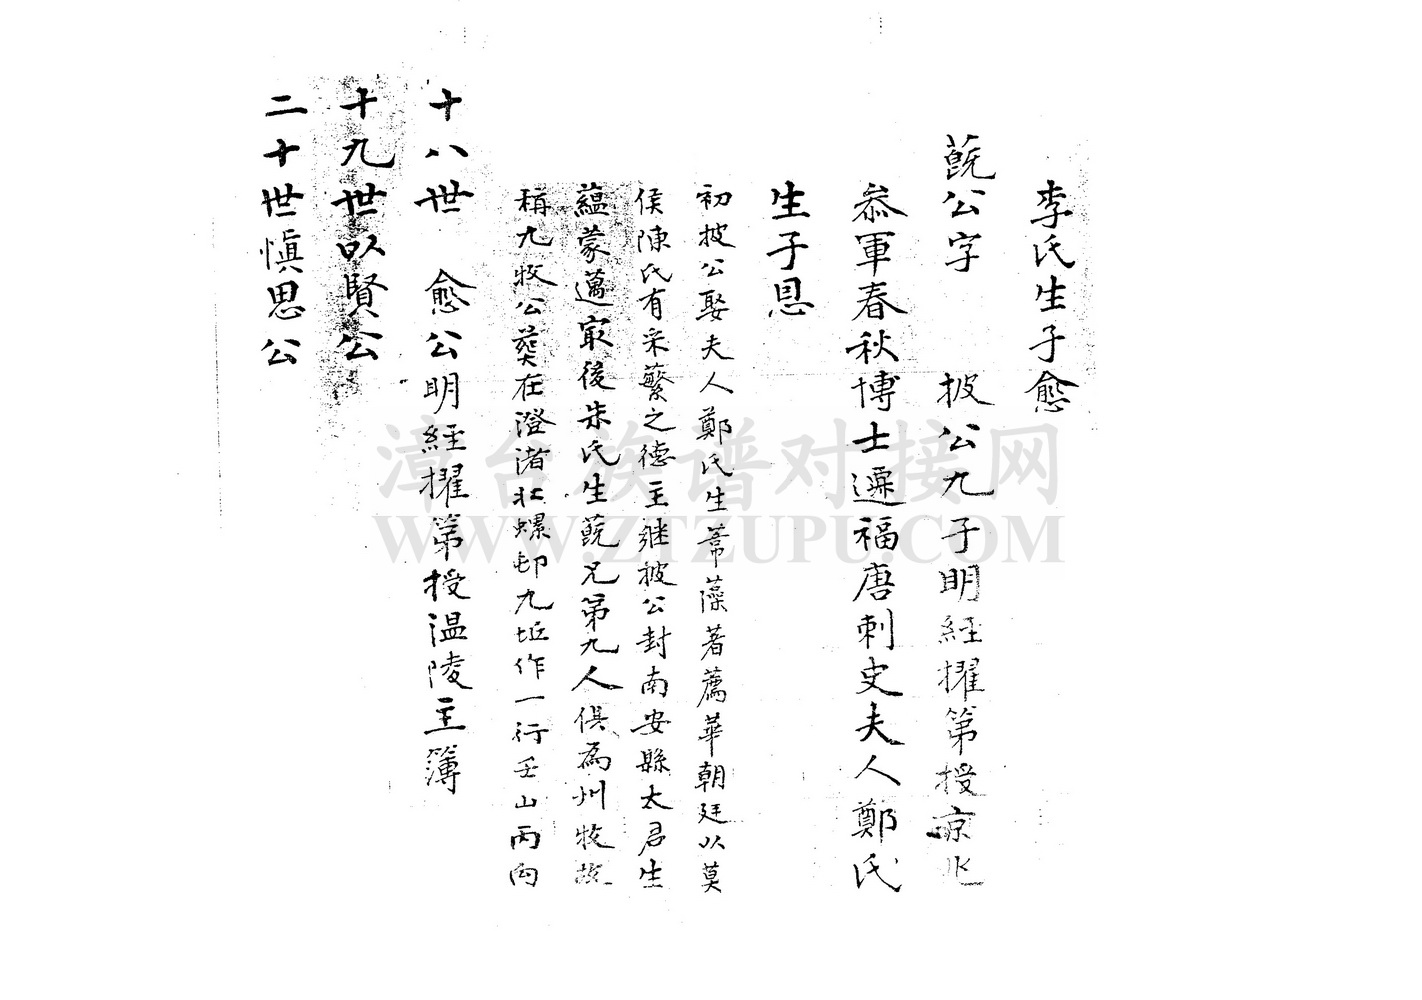 李氏生子愈
蔇公字 披公九子明經擢第授京兆
叅軍春秋博士遷福唐刺史夫人鄭氏
生子恩
初披公娶夫人鄭氏生葦藻著薦華朝廷以莫
侯陳氏有采蘩之德主継披公封南安縣太君生
蘊蒙邁寂後朱氏生蔇兄第九人俱為州牧故
稱九牧公葬在澄渚壯螺邨九坵作一行壬山丙向
十八世 愈公明經擢第授温陵主簿
十九世以賢公
二十世慎思公
漳台族谱对接网
WWW.ZTZUPU.COM